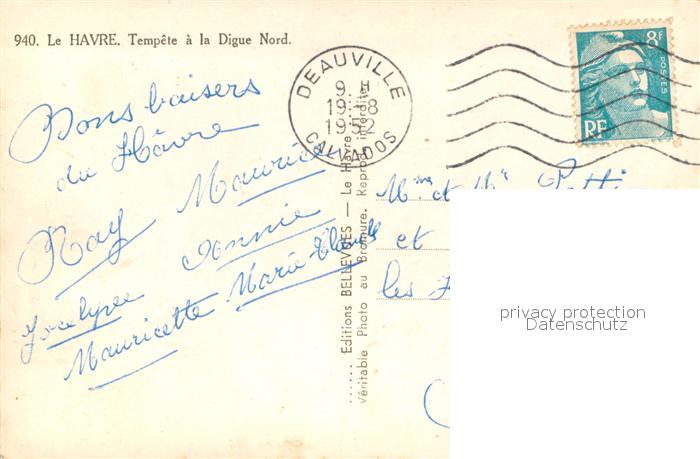 940. Le HAVRE. Tempête à la Digue Nord.
Bons baisers
du Hâvre
Ray Maurice
Jocelyne Annie
Mauricette Marie
DEAUVILLE
9. H
19 - 8
1952
CALVADOS
8F
POSTES
RF
...... Editions BELLEVUES — Le Havre
Véritable Photo au Bromure. Reprod. interdite.
Mme et Mr
et
les
privacy protection
Datenschutz